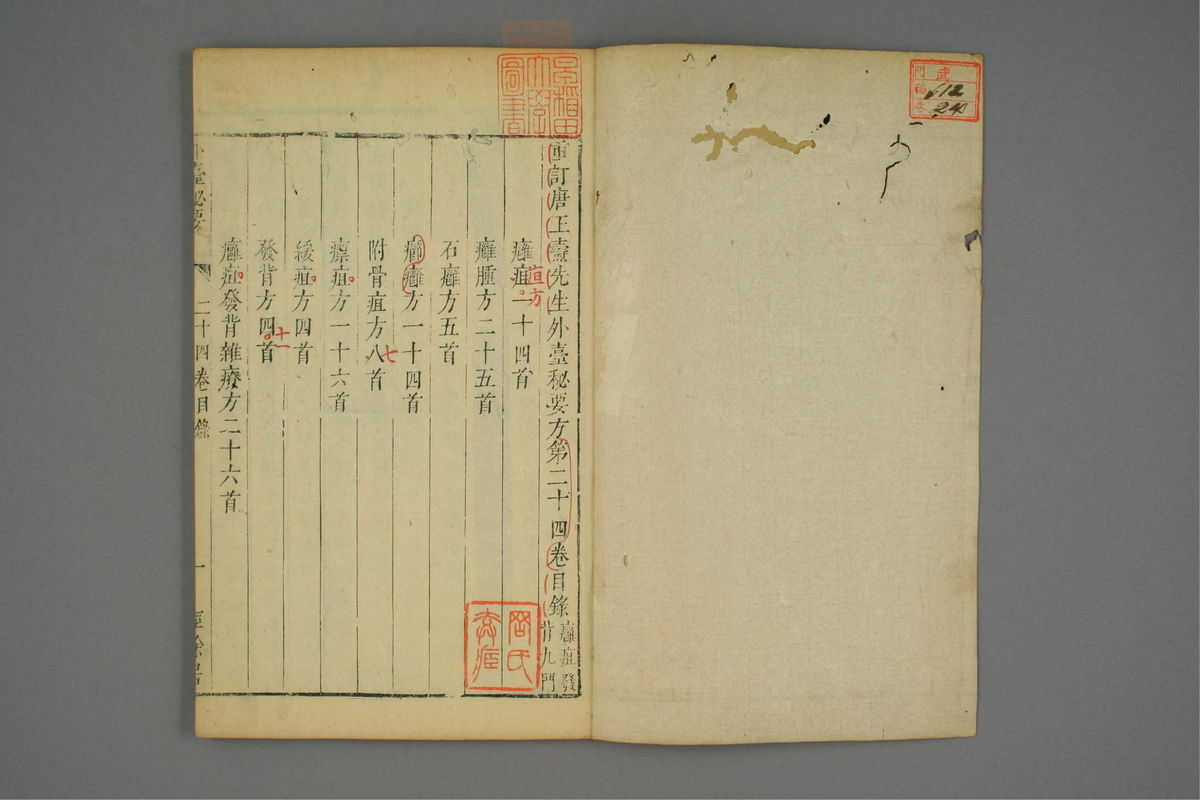 重訂唐王燾先生外臺秘要方第二十四卷目錄
癰疽發
背九門
癰疽一十四首
疽方
癰腫方二十五首
石癰方五首
癤癰方一十四首
附骨疽方八首
七
瘭疽方一十六首
緩疽方四首
發背方四首
十一
癰疽發背雜療方二十六首
臺秘要
二十四卷目錄
一
早稻田大學圖書
門
號
卷
240